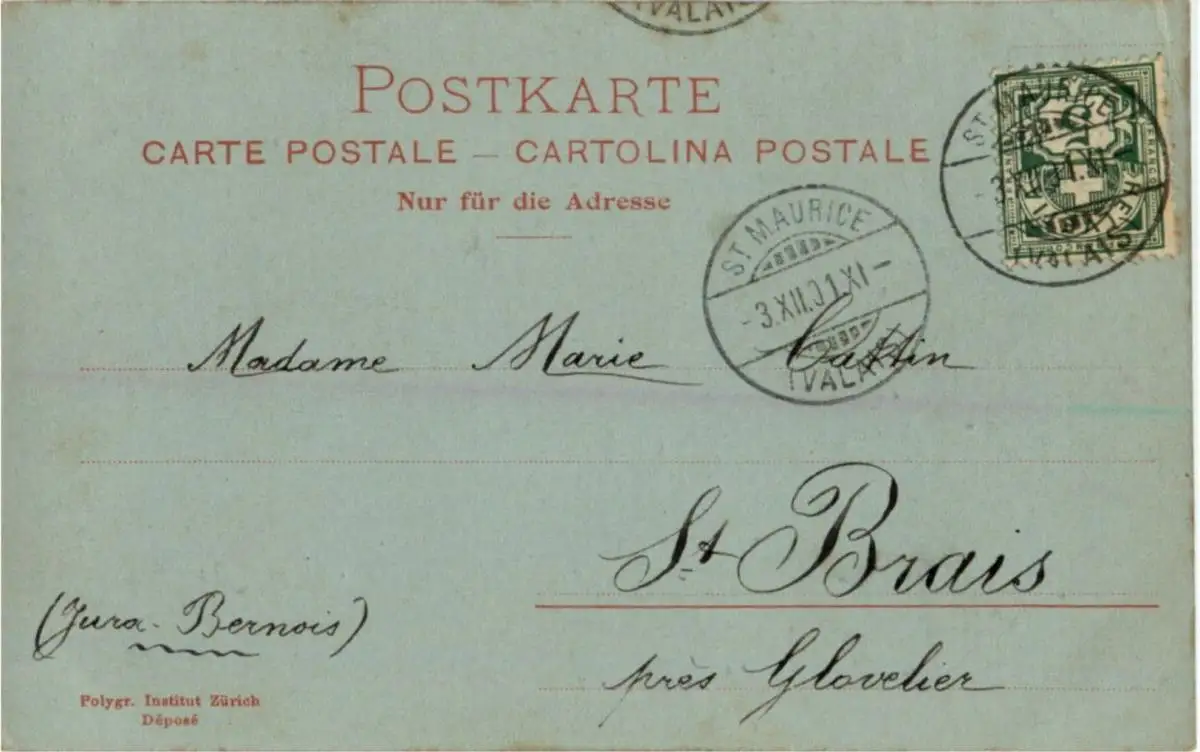 (VALAIS)
POSTKARTE
CARTE POSTALE — CARTOLINA POSTALE
Nur für die Adresse
ST MAURICE
-3.XII.01.XI-
(VALAIS)
ST MAURICE
-3.XII.01.XI-
(VALAIS)
FRANCO
HELVETIA
Madame Marie Cattin
St Brais
(Jura-Bernois)
près Glovelier
Polygr. Institut Zürich
Déposé